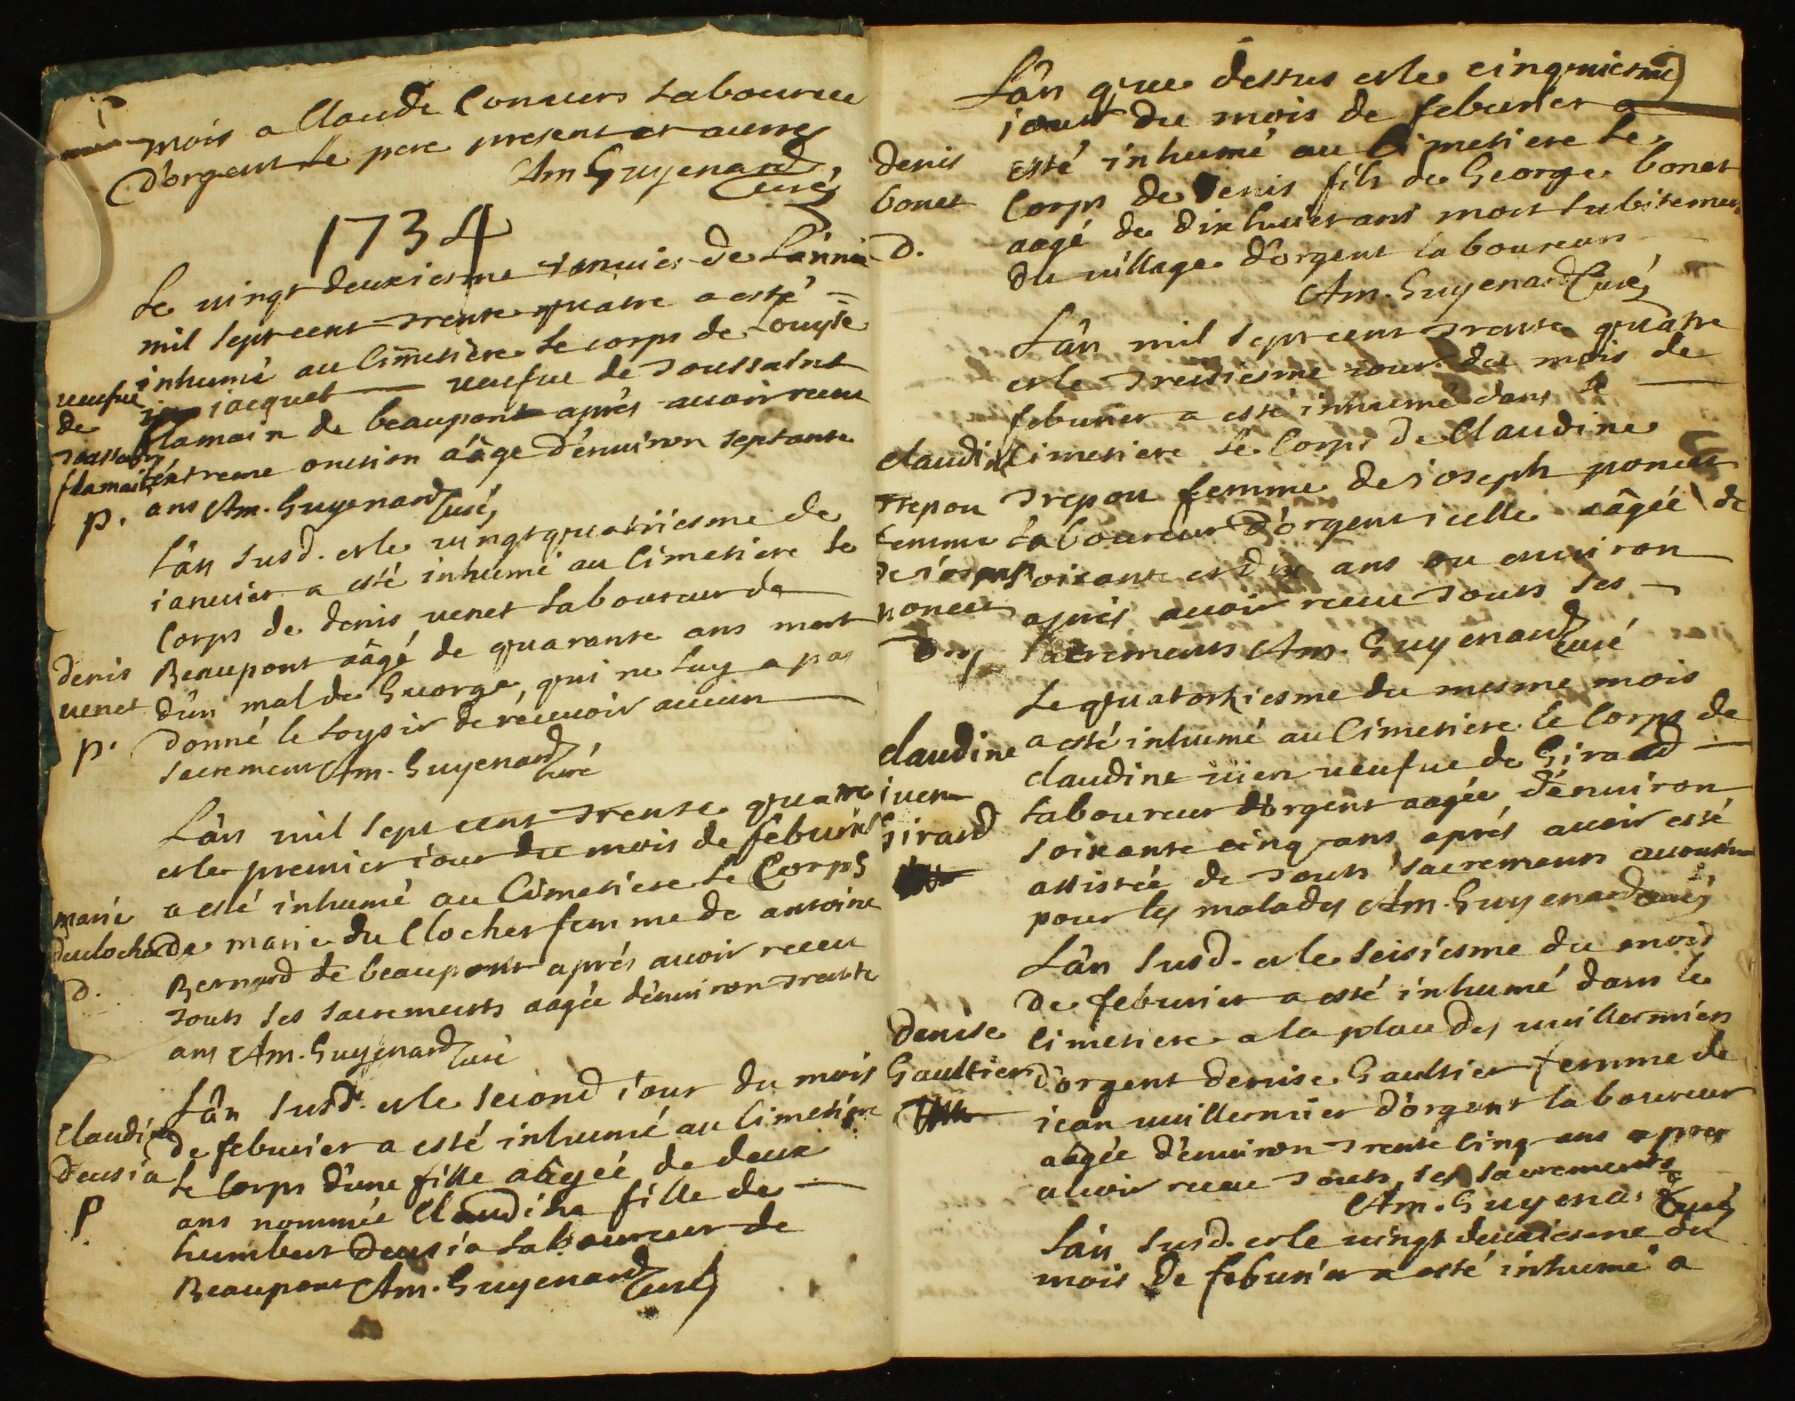 mois a Claude Conuers laboureur
d'orgent le pere present et autres
Am Guyenard
Curé
1734
Le uingt deuxiesme ianuier de L'année
mil sept cent trente quatre a esté
inhumé au Cimetière le corps de Louyse
iacquet ueufue de toussaint
flamain de beaupont après auoir receu
l'éxtreme onction aâge d'enuiron septante
ans Am. Guyenard Curé
ueufue
de
toussaint
flamain
p.
L'ân susd. et le uingtquatriesme de
ianuier a esté inhumé au Cimetiere le
Corps de denis uenet laboureur de
Beaupont aâgé de quarante ans mort
d'un mal de Guorge, qui ne luy a pas
donné le loysir de réceuoir aucun
sacrement Am. Guyenard Curé
denis
uenet
p.
L'ân mil sept cent trente quatre
et le premier iour du mois de féburier
a esté inhumé au Cimetiere le Corps
de marie du Clocher femme de antoine
Bernard de beaupont après auoir receu
touts ses sacrements aagée d'enuiron trente
ans Am. Guyenard Curé
marie
ducloche
D.
L'ân susd. et le second iour du mois
de feburier a esté inhumé au Cimetiere
le corps d'une fille aâgéé de deux
ans nommée Claudine fille de
humbert deusia laboureur de
Beaupont Am. Guyenard Curé
Claudine
deusia
P.
L'ân que dessus et le cinquiesme
iour du mois de feburier a
esté inhumé au Cimetiere le
Corps de denis fils de George bonet
aagé de dix huict ans mort subitement
du uillage d'orgent laboureur
Am. Guyenard Curé
denis
bonet
D.
L'ân mil sept cent trente quatre
et le treisiesme iour du mois de
feburier a esté inhumé dans le
Cimetiere le Corps de Claudine
trepou femme de ioseph poncet
laboureur d'orgent icelle aâgéé de
soixante et dix ans ou enuiron
après auoir receu touts ses
sacrements Am. Guyenard Curé
claudine
trepou
femme
de ioseph
poncet
D.
Le quatorziesme du mesme mois
a esté inhumé au Cimetiere le Corps de
claudine iuen ueufue de Girard
laboureur d'orgent aagée d'enuiron
soixante cinq ans aprés auoir esté
assistée de touts sacrements
pour les malades Am. Guyenard Curé
claudine
iuen
Girard
L'ân susd. et le seisiesme du mois
de féburier a esté inhumé dans le
Cimetiere a la place des uuillermiers
d'orgent denise Gaultier femme de
iean uuillermier d'orgent laboureur
aâgée d'enuiron trente cinq ans apres
auoir receu touts ses sacrements
Am. Guyenard Curé
denise
Gaultier
L'ân susd. et le uingt deuxiesme du
mois de feburier a esté inhumé a